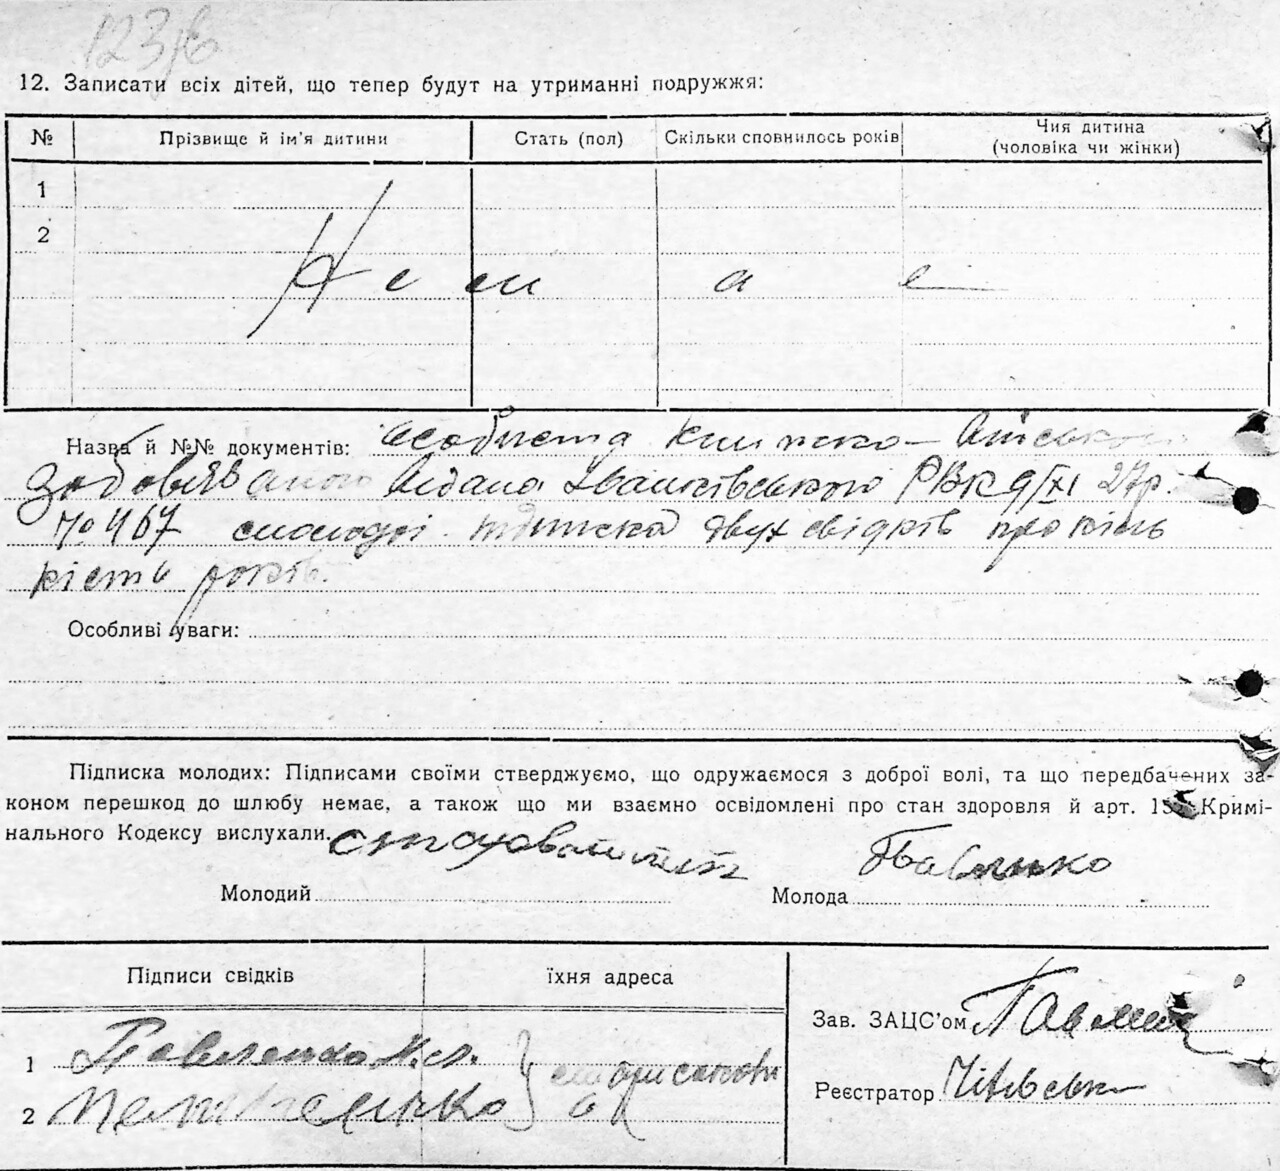 12. Записати всіх дітей, що тепер будут на утриманні подружжя:
№ Прізвище й ім'я дитини Стать (пол) Скільки сповнилось років Чия дитина (чоловіка чи жінки)
1
2
Немає
Назва й №№ документів: Особиста книжка Військово
Зобовязаного Видана Іванківським РВК 9/XI 27р.
№ 467 молодої підписка двух свідків про кіль
кість років.
Особливі уваги:
Підписка молодих: Підписами своїми стверджуємо, що одружаємося з доброї волі, та що передбачених за-
коном перешкод до шлюбу немає, а також що ми взаємно освідомлені про стан здоровля й арт. Кримі-
нального Кодексу вислухали.
Молодий Молода Павленко
Підписи свідків їхня адреса
Зав. ЗАЦС'ом
1 Павленко
Реєстратор
2